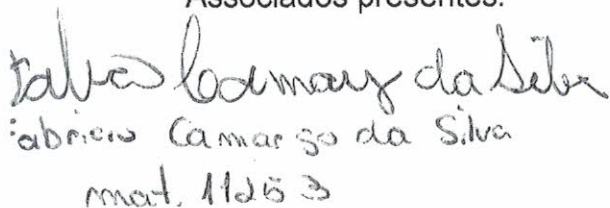 Associados presentes:
Camargo da Silva
Fabricio Camargo da Silva
mat.